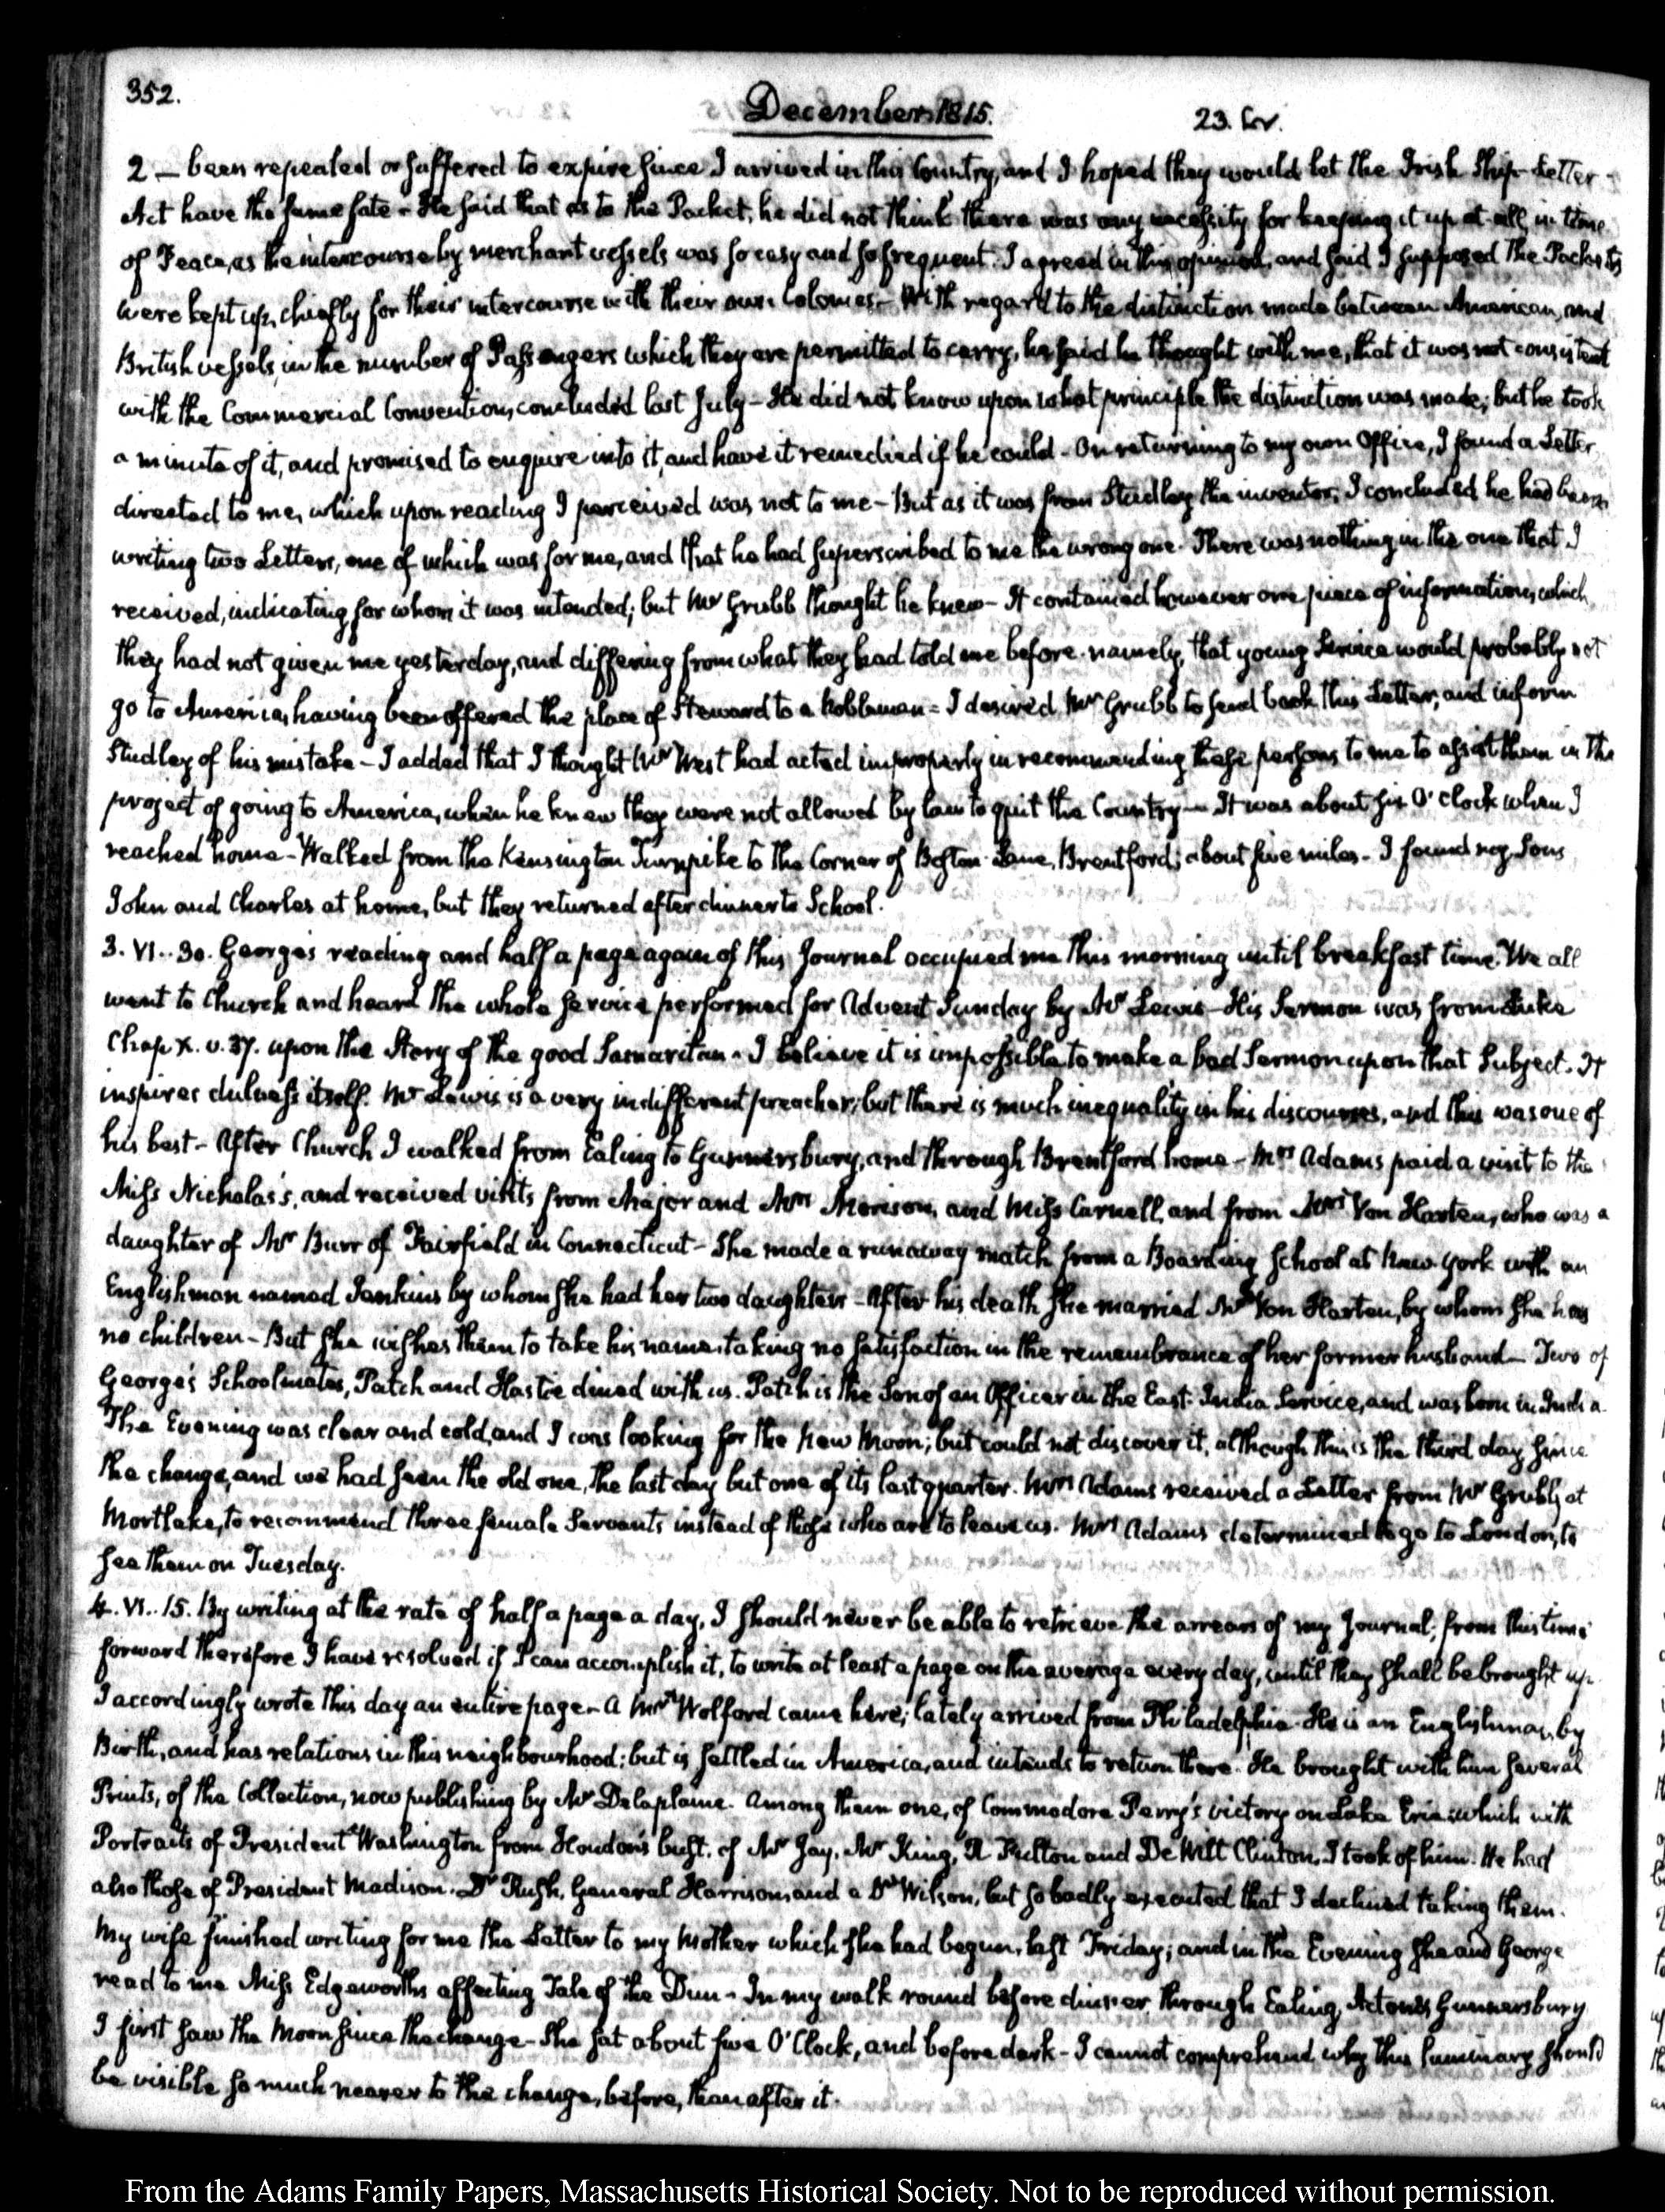 352.
December 1815.
23. Liv.
2 — been repealed or suffered to expire since I arrived in this Country, and I hoped they would let the Irish Ship-Letter
Act have the same fate - He said that as to the Packet, he did not think there was any necessity for keeping it up at all in time
of Peace, as the intercourse by merchant vessels was so easy and so frequent. I agreed in this opinion, and said I supposed the Packets
were kept up, chiefly for their intercourse with their own Colonies. - With regard to the distinction made between American, and
British vessels, in the number of Passengers which they are permitted to carry, he said he thought with me, that it was not consistent
with the Commercial Convention, concluded last July - He did not know upon what principle the distinction was made; but he took
a minute of it, and promised to enquire into it, and have it remedied if he could - On returning to my own Office, I found a Letter
directed to me, which upon reading I perceived was not to me - But as it was from Studley the inventor, I concluded he had been
writing two Letters, one of which was for me, and that he had superscribed to me the wrong one. There was nothing in the one that I
received, indicating for whom it was intended; but Mr Grubb thought he knew - It contained however one piece of information, which
they had not given me yesterday, and differing from what they had told me before. namely, that young would probably not
go to America, having been offered the place of Steward to a Nobleman - I desired Mr Grubb to send back this Letter, and inform
Studley of his mistake - I added that I thought Mr West had acted improperly in recommending these persons to me to assist them in the
project of going to America, when he knew they were not allowed by law to quit the Country - It was about six O'Clock when I
reached home - Walked from the Kensington Turnpike to the Corner of Boston Lane, Brentford; about five miles - I found my Sons
John and Charles at home, but they returned after dinner to School.
3. VI..30. George's reading and half a page again of this Journal occupied me this morning until breakfast time. We all
went to Church and heard the whole service performed for Advent Sunday by Mr Lewis - His Sermon was from Luke
Chap X. v. 37. upon the Story of the good Samaritan - I believe it is impossible to make a bad Sermon upon that Subject. It
inspires dulness itself. Mr Lewis is a very indifferent preacher; but there is much inequality in his discourses, and this was one of
his best - After Church I walked from Ealing to Gunnersbury, and through Brentford home - Mrs Adams paid a visit to the
Miss Nicholas's, and received visits from Major and Mrs Morison, and Miss Carnell, and from Mrs Von Harten, who was a
daughter of Mr Burr of Fairfield in Connecticut - She made a runaway match from a Boarding School at New-York with an
Englishman named Jenkins by whom she had her two daughters - After his death she married Mr Von Harten, by whom she has
no children - But she wishes them to take his name, taking no satisfaction in the remembrance of her former husband - Two of
George's Schoolmates, Patch and Hastie dined with us. Patch is the Son of an Officer in the East-India Service, and was born in India.
The Evening was clear and cold, and I was looking for the New Moon; but could not discover it, although this is the third day since
the change, and we had seen the old one, the last day but one of its last quarter. Mrs Adams received a Letter from Mr Grubb, at
Mortlake, to recommend three female Servants instead of those who are to leave us. Mrs Adams determined to go to London, to
see them on Tuesday.
4. VI..15. By writing at the rate of half a page a day, I should never be able to retrieve the arrears of my Journal; from this time
forward therefore I have resolved if I can accomplish it, to write at least a page on the average every day, until they shall be brought up.
I accordingly wrote this day an entire page - A Mr Wolford came here; lately arrived from Philadelphia. He is an Englishman by
Birth, and has relations in this neighbourhood; but is settled in America, and intends to return there. He brought with him several
Prints, of the Collection, now publishing by Mr Delaplaine. Among them one, of Commodore Perry's victory on Lake Erie, which with
Portraits of President Washington from Houdon's bust. of Mr Jay, Mr King, R Fulton and De Witt Clinton, I took of him. He had
also those of President Madison. Dr Rush, General Harrison and a Dr Wilson, but so badly executed that I declined taking them.
My wife finished writing for me the Letter to my Mother which she had begun, last Friday; and in the Evening she and George
read to me Miss Edgeworth's affecting Tale of the Dun - In my walk round before dinner through Ealing, Acton & Gunnersbury
I first saw the Moon since the change - She sat about five O'Clock, and before dark - I cannot comprehend why this luminary should
be visible so much nearer to the change, before, than after it.
From the Adams Family Papers, Massachusetts Historical Society. Not to be reproduced without permission.